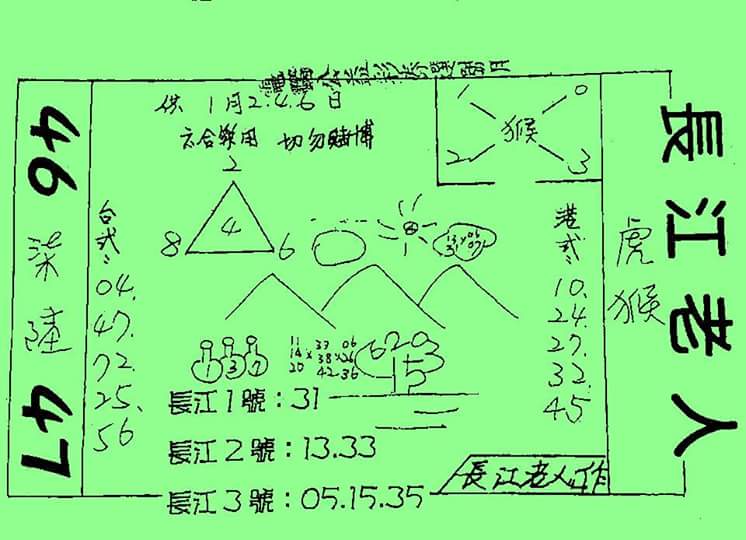 供 1月2.4.6日
六合樂用 切勿賭博
1 0
猴
2 3
長江老人
虎
猴
46
柒
陸
47
2
4
8 6
台式:
04.
47.
72.
25.
56
港式:
10.
24.
27.
32.
45
13 × 06
31 07
1 3 7
11 33 06
14 × 38 × 26
20 42 36
6203
15
長江1號:31
長江2號:13.33
長江3號:05.15.35
長江老人作